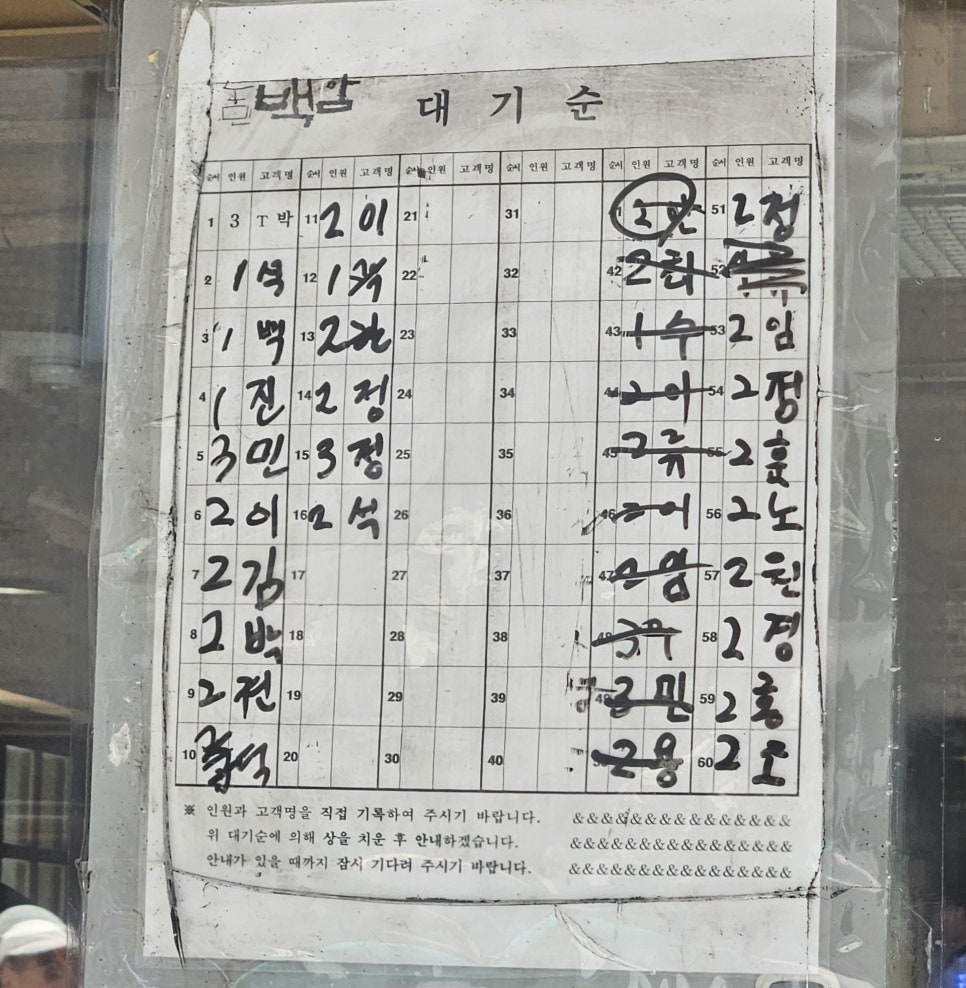 백암 대 기 순
순서 인원 고객명 순서 인원 고객명 순서 인원 고객명 순서 인원 고객명 순서 인원 고객명 순서 인원 고객명
1 3 T 박 11 2 이 21 31 2 51 2 정
2 1 석 12 1 22 32 42 2 최
3 1 백 13 2 23 33 43 1 수 53 2 임
4 1 진 14 2 정 24 34 2 이 54 2 정
5 3 민 15 3 정 25 35 45 2 류 55 2 훈
6 2 이 16 2 석 26 36 46 2 이 56 2 노
7 2 김 17 27 37 47 2 엄 57 2 원
8 2 박 18 28 38 48 3 58 2 정
9 2 전 19 29 39 49 민 59 2 홍
10 석 20 30 40 2 용 60 2 오
※ 인원과 고객명을 직접 기록하여 주시기 바랍니다. &&&&&&&&&&&&&&&
위 대기순에 의해 상을 치운 후 안내하겠습니다. &&&&&&&&&&&&&&&
안내가 있을 때까지 잠시 기다려 주시기 바랍니다. &&&&&&&&&&&&&&&